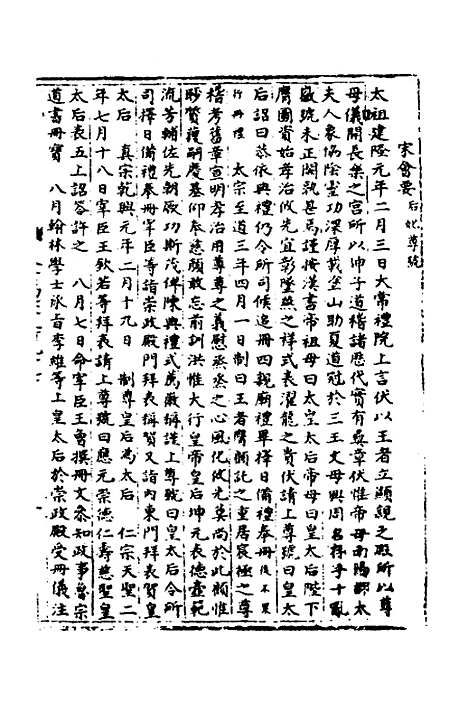 宋會要 后妃尊號
太祖建隆元年二月三日太常禮院上言伏以王者立顯親之殿所以尊
母儀開長樂之宮所以坤子道稽諸歷代實有典章伏惟帝母南陽郡太
夫人象協陰靈功深厚載塗山助夏道冠於三王文母興周名存乎十亂
徽號未正闕孰甚焉謹按漢書帝祖母曰太皇太后帝母曰皇太后陛下
膺圖資始孝治攸先宜彰塋然之祥式表濯龍之貴伏請上尊號曰皇太
后詔曰恭依典禮仍令所司候追冊四親廟禮畢擇日備禮奉冊後不果
行冊禮 太宗至道三年四月一日制曰王者膺顧託之重居宸極之尊
稽考舊章宣明孝治用尊尊之義慰烝烝之心風化攸先莫尚於此顧惟
眇質獲嗣慶基仰奉慈顏敢忘前訓洪惟大行皇帝皇后坤元表德壼範
流芳輔佐先朝厥功斯茂俾陳典禮式薦徽稱謹上尊號曰皇太后令所
司擇日備禮奉冊宰臣等詣崇政殿門拜表稱賀又詣內東門拜表賀皇
太后 真宗乾興元年二月十九日 制尊皇后為太后 仁宗天聖二
年七月十八日宰臣王欽若等拜表請上尊號曰應元崇德仁壽慈聖皇
太后表五上詔答許之 八月七日命宰臣王曾撰冊文參知政事魯宗
道書冊寶 八月翰林學士承旨李維等上皇太后於崇政殿受冊儀注